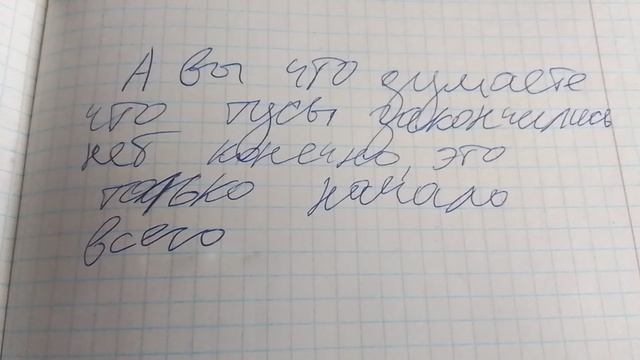 А вы что думаете
что тусы закончились
нет конечно, это
только начало
всего